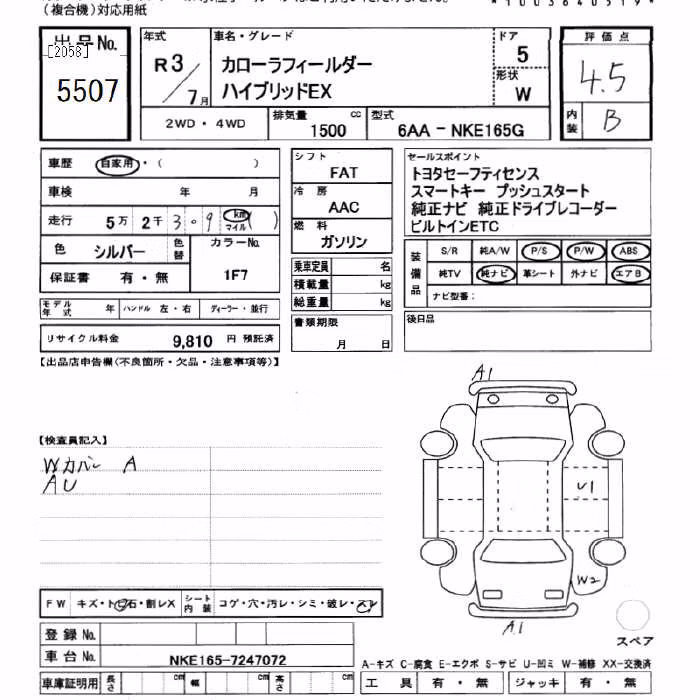 (複合機)対応用紙
*1003640519*
出品No.
[2058]
5507
年式
R3/7月
車名・グレード
カローラフィールダー
ハイブリッドEX
ドア
5
形状
W
評価点
4.5
内装
B
2WD・4WD
排気量
1500 cc
型式
6AA - NKE165G
車歴 自家用・( )
車検 年 月
走行 5万 2千 3 0 9 km マイル ( )
色 シルバー 色替
カラーNo.
1F7
保証書 有・無
モデル年式 年 ハンドル 左・右 ディーラー・並行
リサイクル料金 9,810 円 預託済
シフト
FAT
冷房
AAC
燃料
ガソリン
乗車定員 名
積載量 kg
総重量 kg
書類期限
月 日
セールスポイント
トヨタセーフティセンス
スマートキー プッシュスタート
純正ナビ 純正ドライブレコーダー
ビルトインETC
装備品
S/R 純A/W P/S P/W ABS
純TV 純ナビ 革シート 外ナビ エアB
ナビ型番:
後日品
【出品店申告欄(不良箇所・欠品・注意事項等)】
【検査員記入】
Wカバー A
AU
A1
U1
W2
A1
スペア
FW キズ・トビ石・割レX シート内装 コゲ・穴・汚レ・シミ・破レ・スレ
登録No.
車台No. NKE165-7247072
車庫証明用 長さ cm 幅 cm 高さ cm
A-キズ C-腐食 E-エクボ S-サビ U-凹ミ W-補修 XX-交換済
工具 有・無 ジャッキ 有・無